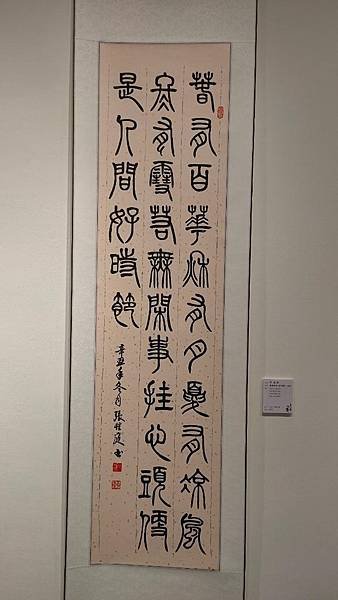 春有百華秋有月夏有涼風
冬有雪若無閑事挂心頭便
是人間好時節
辛丑年冬月張書